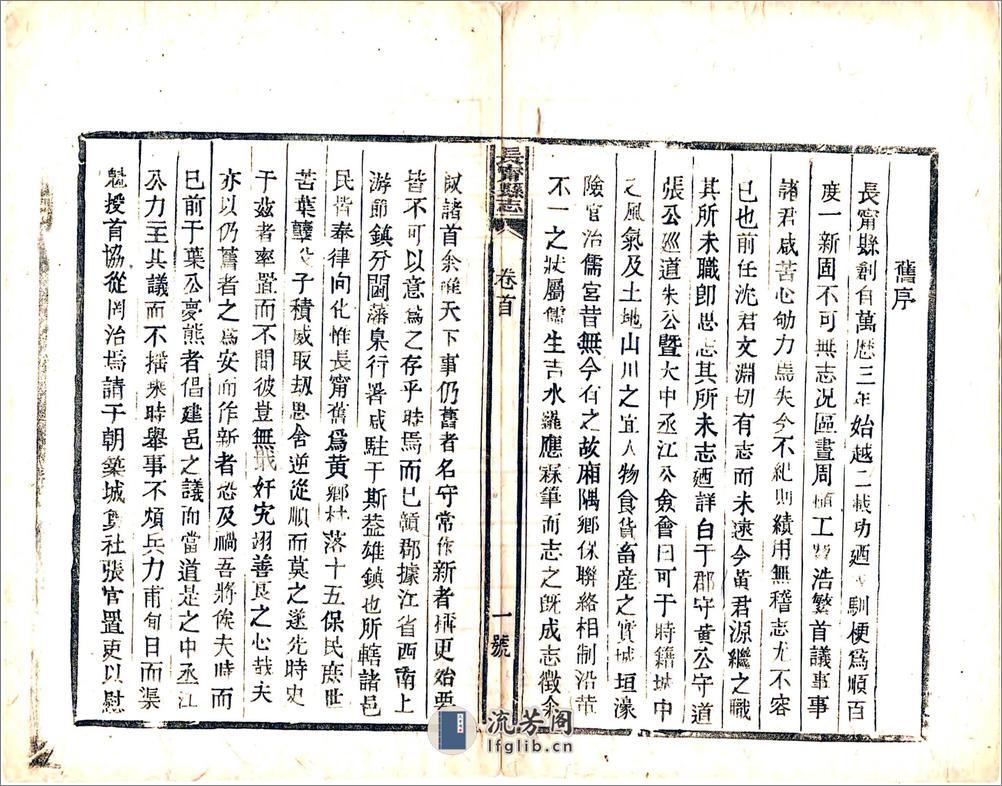 舊序
長甯縣剏自萬歷三年始越二載功廼馴便爲順百
度一新固不可無志况區畫周工浩繁首議事事
諸君咸苦心劬力焉失今不紀則績用無稽志尤不容
已也前任沈君文淵切有志而未遑今黃君源繼之職
其所未職卽思志其所未志廼詳白于郡守黃公守道
張公廵道朱公曁大中丞江公僉會曰可于時籍城中
之風氣及土地山川之宜人物食貨畜産之實城垣濠
險官治儒宮昔無今有之故廂隅鄉保聯絡相制沿革
不一之狀屬儒生吉水羅應霖筆而志之旣成志徵余
長甯縣志
卷首
一號
諸首余天下事仍舊者名守常作新者稱更始要
皆不可以意爲之存乎時焉而已贛郡據江省西南上
游節鎭分閫藩臬行署咸駐于斯葢雄鎭也所轄諸邑
民皆奉律向化惟長甯舊爲黃鄉村落十五保民庶世
苦葉孽父子積威取刼思舍逆從順而莫之遂先時史
于茲者率置而不問彼豈無戢奸宄翊善良之心哉夫
亦以仍舊者之爲安而作新者恐及禍吾將俟夫時而
已前于葉公夢熊者倡建邑之議而當道是之中丞江
公力主其議而不撓乘時舉事不煩兵力甫旬日而渠
魁授首協從罔治焉請于朝築城負社張官置吏以慰
流芳阁
lfglib.cn